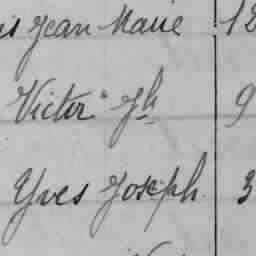 Jean Marie 18
Victor Jh 9
Yves Joseph 3